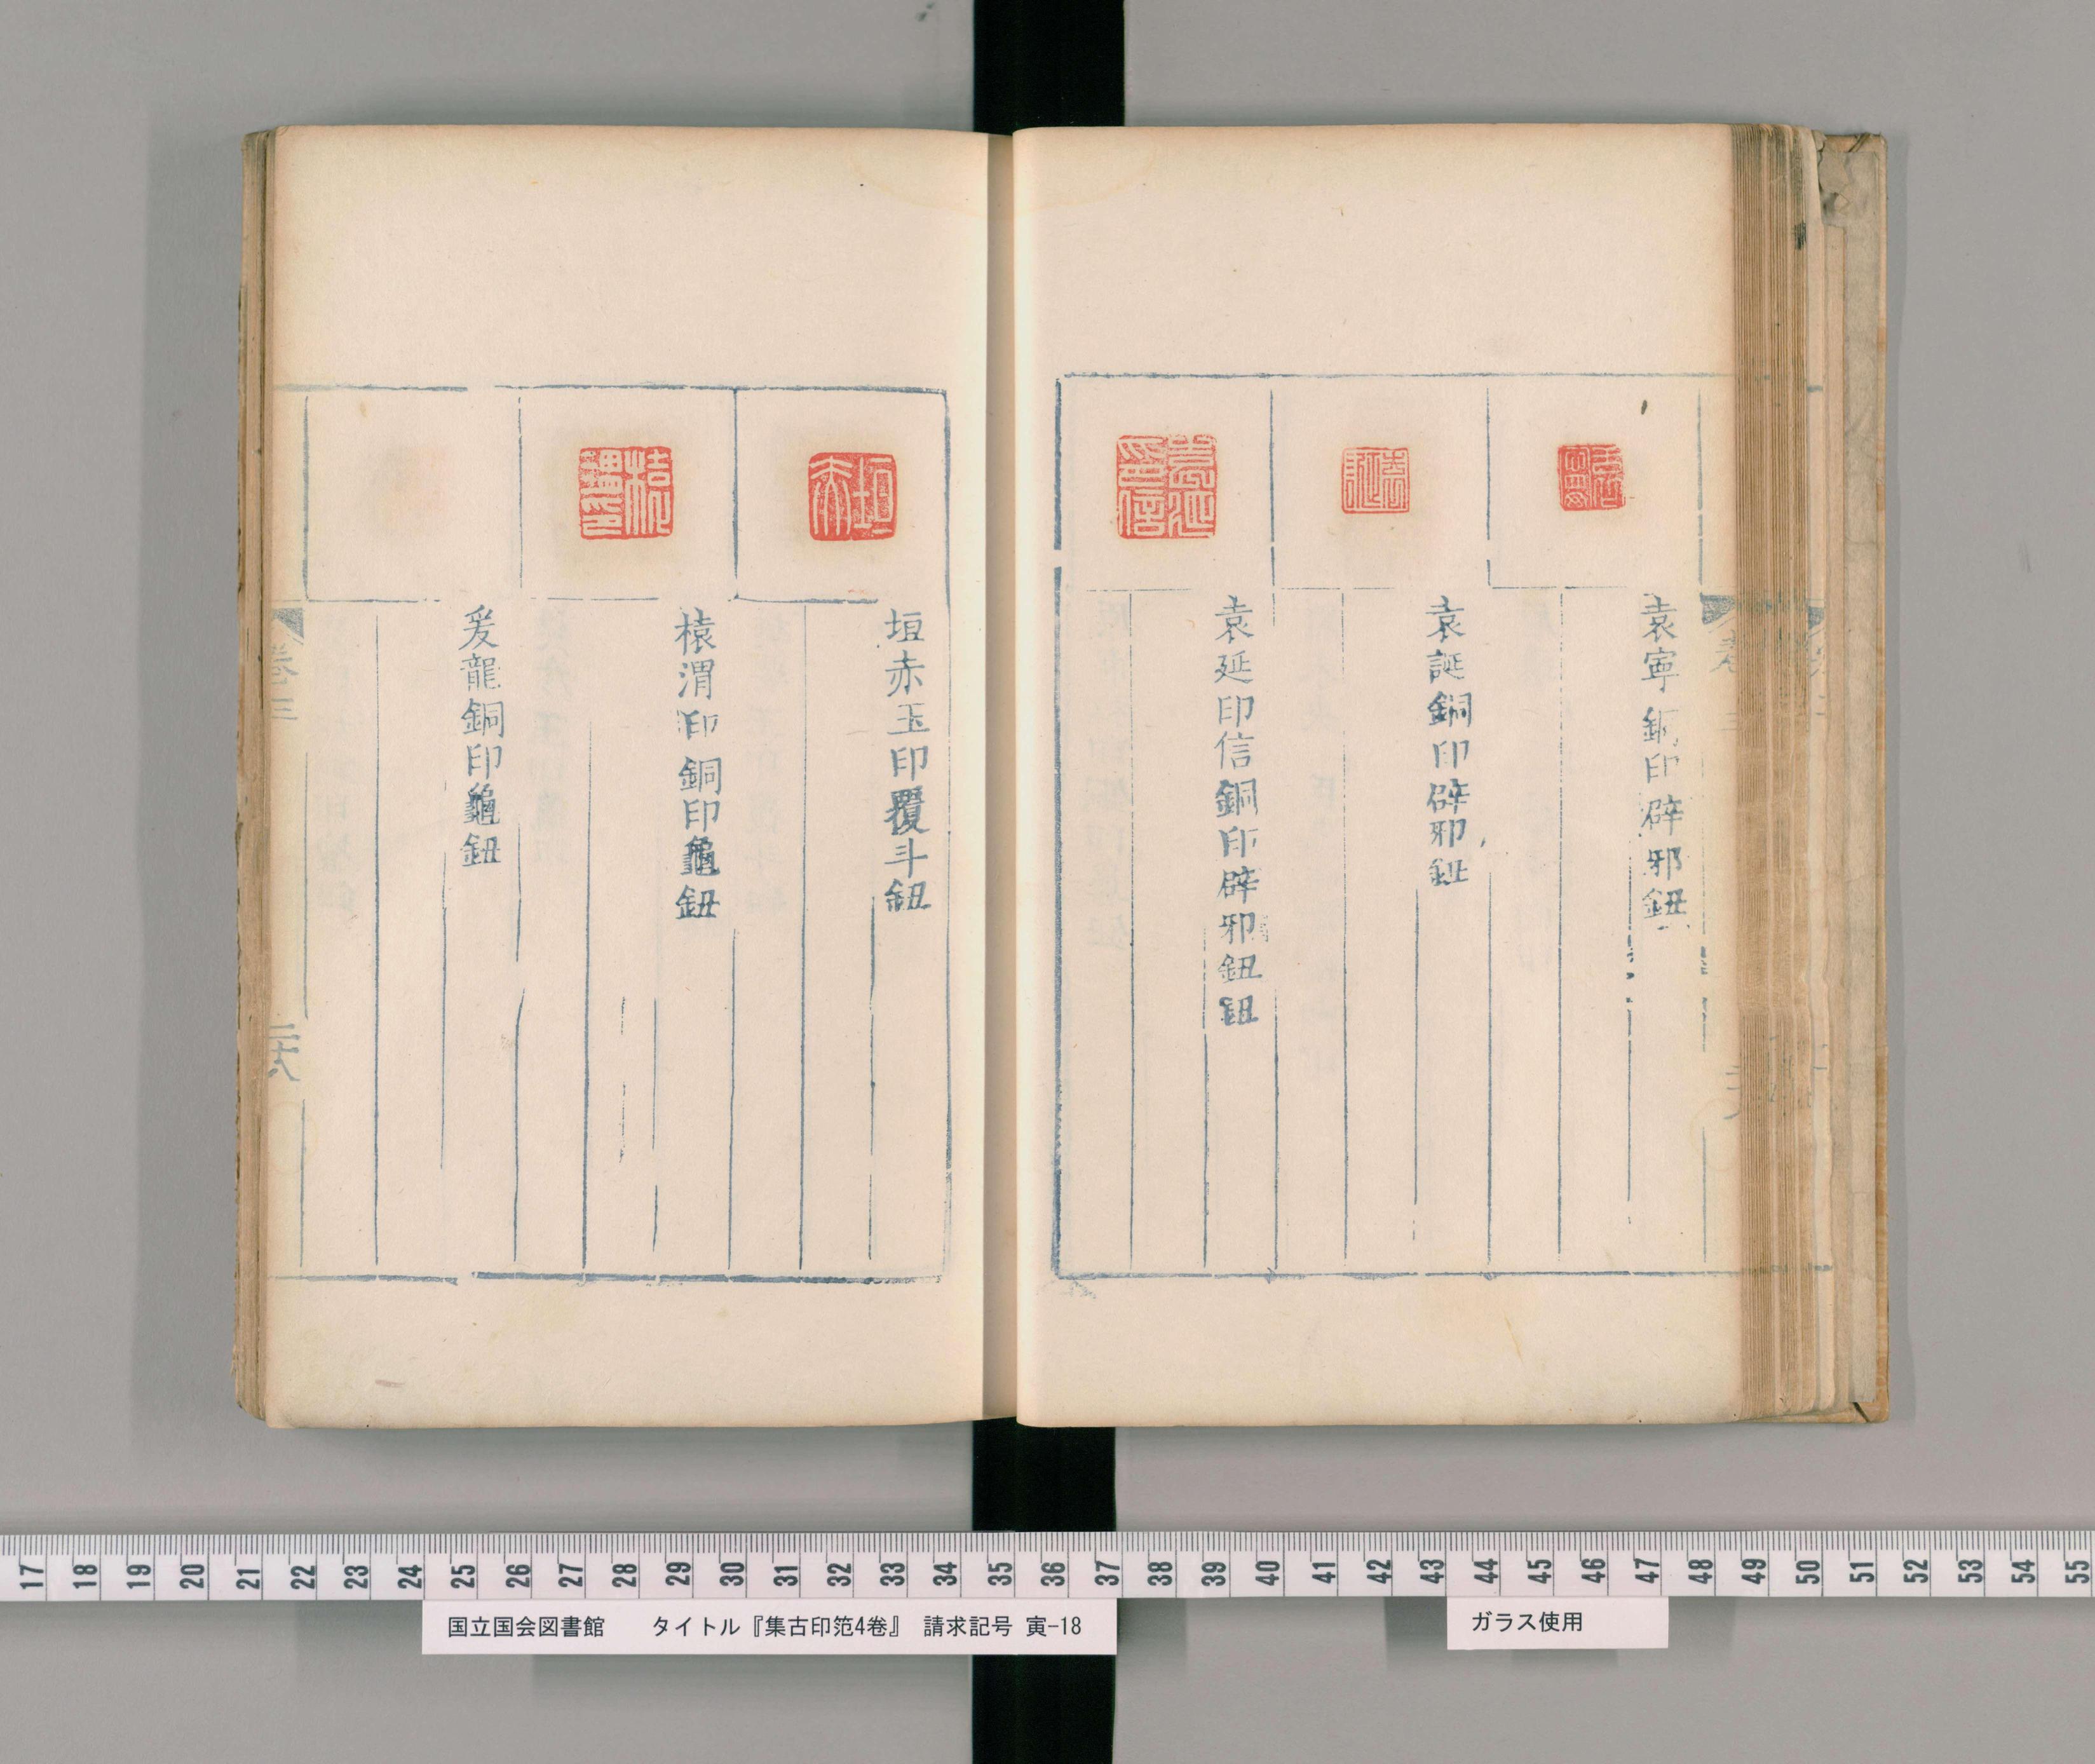 袁寧銅印辟邪鈕
袁誕銅印辟邪鈕
袁延印信銅印辟邪鈕鈕
垣赤玉印覆斗鈕
榬渭印銅印龜鈕
爰龍銅印龜鈕
卷三
二十八
17 18 19 20 21 22 23 24 25 26 27 28 29 30 31 32 33 34 35 36 37 38 39 40 41 42 43 44 45 46 47 48 49 50 51 52 53 54 55
国立国会図書館 タイトル『集古印笵4巻』 請求記号 寅-18
ガラス使用